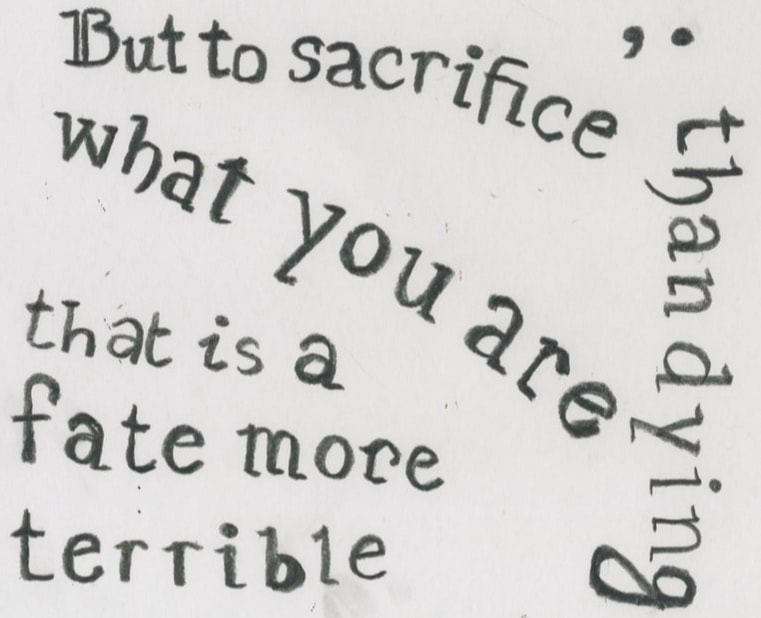 But to sacrifice
what you are
that is a
fate more
terrible
than dying